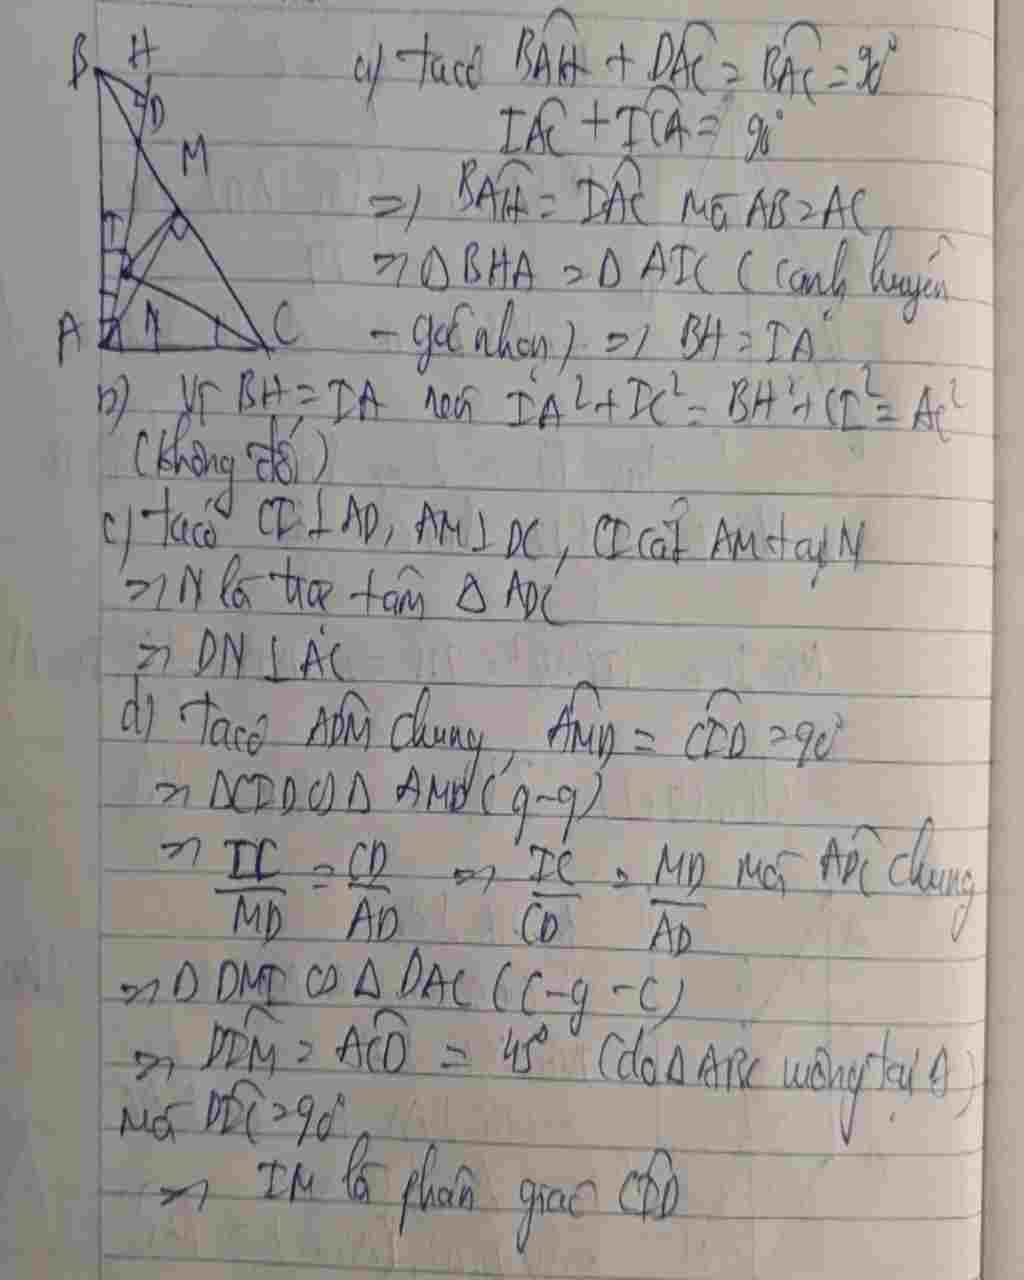 B H
D
M
I
A N C
a) ta có BAH + DAC = BAC = 90°
IAC + ICA = 90°
=> BAH = IAC mà AB = AC
=> Δ BHA = Δ AIC (cạnh huyền
- góc nhọn) => BH = IA
b) Vì BH = IA nên IA² + IC² = BH² + CI² = AC²
(không đổi)
c) ta có CI ⊥ AD, AM ⊥ DC, CI cắt AM tại N
=> N là trực tâm Δ ADC
=> DN ⊥ AC
d) ta có ADM chung, AMD = CID = 90°
=> ΔCID ∽ Δ AMD (g-g)
=> IC/MD = CD/AD => IC/CD = MD/AD mà ADC chung
=> Δ DMI ∽ Δ DAC (c-g-c)
=> DIM = ACD = 45° (do Δ ABC vuông tại A)
Mà DIC = 90°
=> IM là phân giác CID